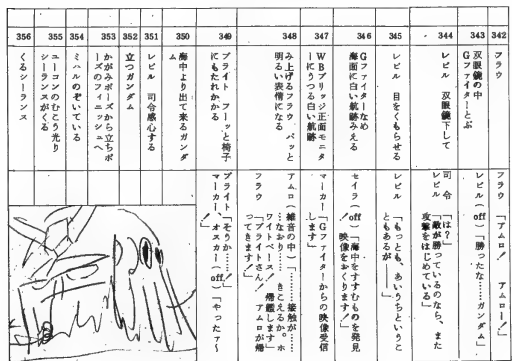 342
フラウ
フラウ「アムロ！　アムロー！」
343
双眼鏡の中
Gファイターとぶ
レビル（off）「勝ったな……ガンダム」
344
レビル　双眼鏡下して
司令「は？」
レビル「敵が勝っているのなら、また
攻撃をはじめている」
345
レビル　目をくもらせる
レビル「もっとも、あいうちということ
ともあるが――」
346
Gファイターなめ
海面に白い航跡みえる
セイラ（off）「海中をすすむものを発見
！　映像をおくります！」
347
WBブリッジ正面モニタ
ーにうつる白い航跡
マーカー「Gファイターからの映像受信
します」
348
み上げるフラウ　パッと
明るい表情になる
アムロ（雑音の中）「………接触が……
…なおり……きこえるか。ホ
ワイトベース！　帰艦します」
フラウ　「ブライトさん！　アムロが帰
ってきます！」
349
ブライト　フーッと椅子
にもたれかかる
ブライト「そうか……！」
マーカー、オスカー（off）「やったァ～
！」
350
海中より出て来るガンダ
ム
351
レビル　司令感心する
352
立つガンダム
353
かがみポーズから立ちポ
ーズのフィニッシュへ
354
ミハルのぞいている
355
ユーコンのむこう光り
シーランスがくる
356
くるシーランス